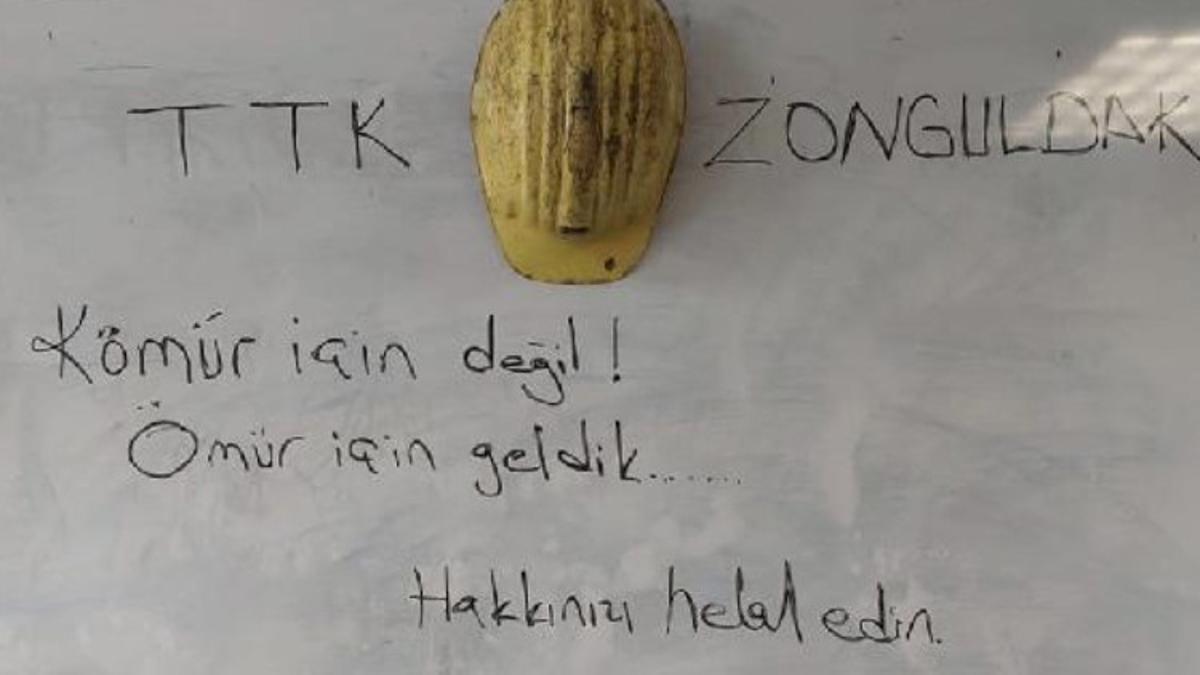 TTK ZONGULDAK
Kömür için değil!
Ömür için geldik.......
Hakkınızı helal edin.